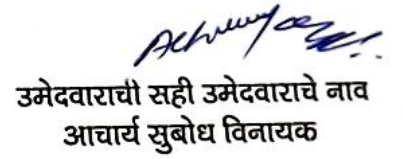 उमेदवाराची सही उमेदवाराचे नाव
आचार्य सुबोध विनायक